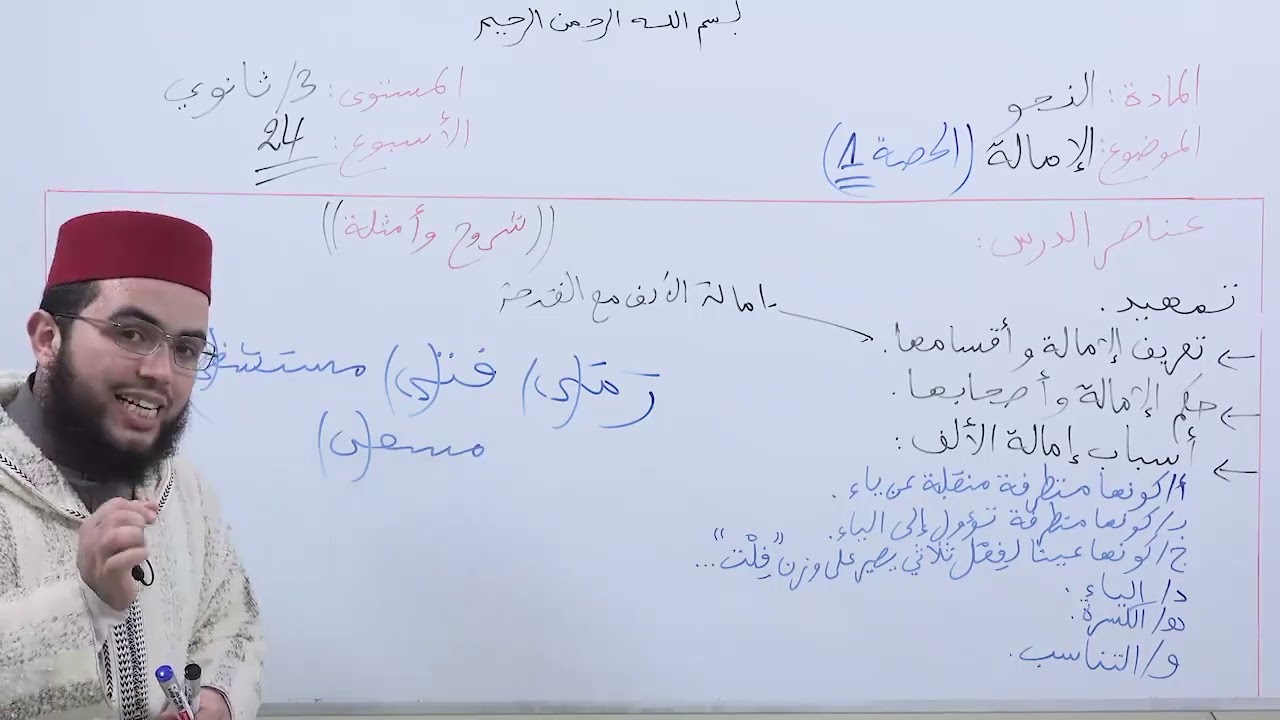 بسم الله الرحمن الرحيم
المادة: النحو
الموضوع: الإمالة (الحصة 1)
المستوى: 3/ ثانوي
الأسبوع: 24
عناصر الدرس:
تمهيد.
← تعريف الإمالة وأقسامها.
← حكم الإمالة وأصحابها.
← أسباب إمالة الألف:
أ/ كونها متطرفة منقلبة عن ياء.
ب/ كونها متطرفة تؤول إلى الياء.
ج/ كونها عينًا لفعل ثلاثي يصير على وزن "فِلْت"...
د/ الياء.
هـ/ الكسرة.
و/ التناسب.
((شروح وأمثلة))
- إمالة الألف مع الفتحة
رَمَـ(ى) فتـ(ى)
مسعـ(ى)